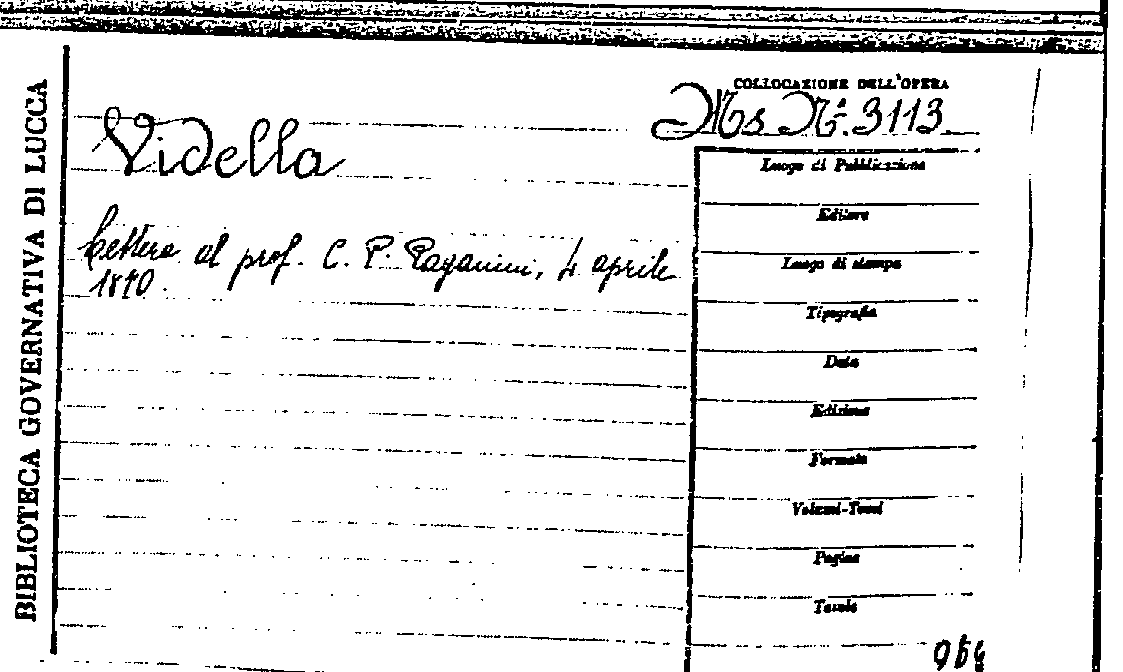 BIBLIOTECA GOVERNATIVA DI LUCCA
COLLOCAZIONE DELL'OPERA
Ms Nº. 3113
Vidella
Lettera al prof. C. P. Paganini, 4 aprile
1870.
Luogo di Pubblicazione
Editore
Luogo di stampa
Tipografia
Data
Edizione
Formato
Volumi-Tomi
Pagine
Tavole